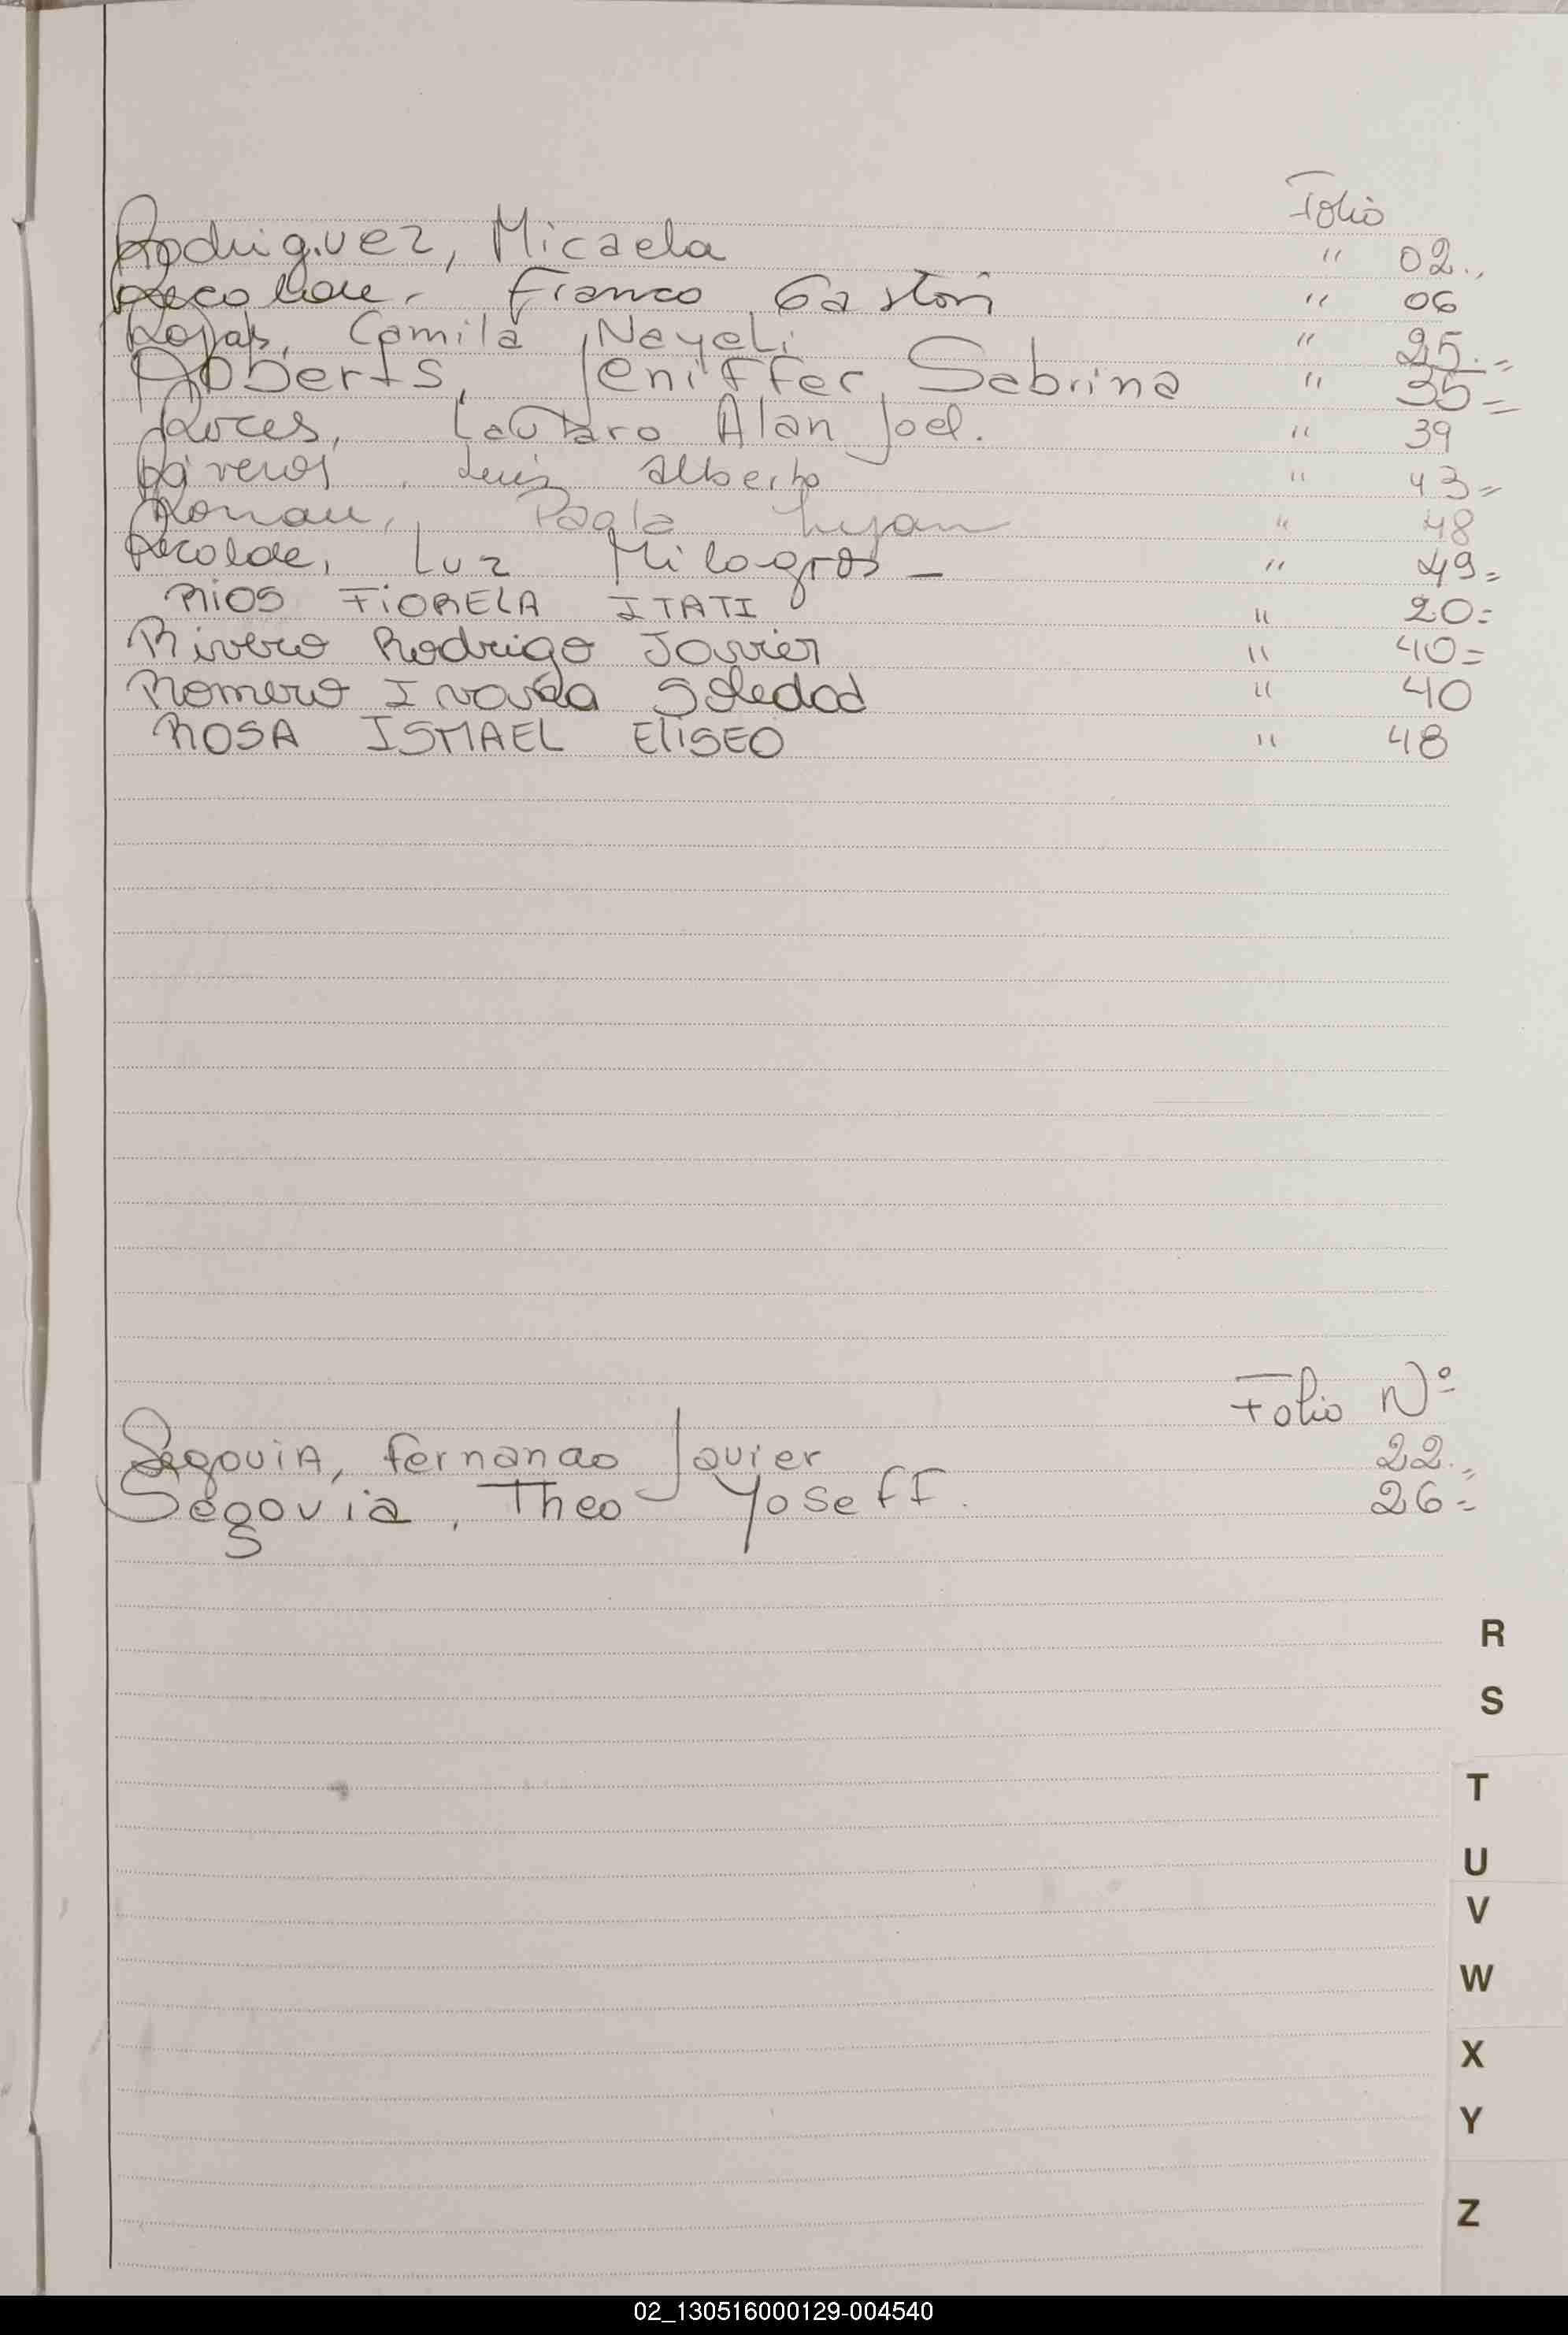 Folio
Rodriguez, Micaela " 02.,
Recalde, Franco Gastón " 06
Rojas, Camila Nayeli " 25.=
Roberts, Jeniffer Sabrina " 35=
Roces, Lautaro Alan Joel. " 39
Riveros, Luis Alberto " 43=
Roman, Paola Lujan " 48
Recalde, Luz Milagros - " 49=
RIOS FIORELA ITATI " 20=
Rivero Rodrigo Javier " 40=
Romero Soledad " 40
ROSA ISMAEL ELISEO " 48
Folio Nº
Segovia, Fernando Javier 22.,
Segovia, Theo Yoseff. 26=
R
S
T
U
V
W
X
Y
Z
02_130516000129-004540